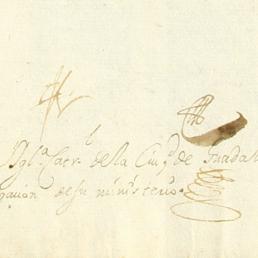 Ygl.ª Sacr. de la Ciu.d de Guadal
gacion de su ministerio.